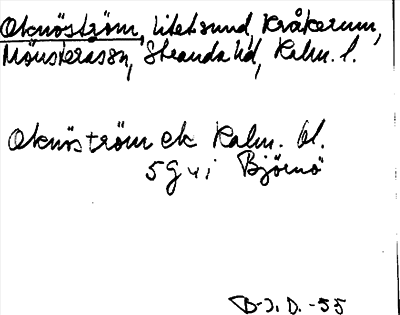 Oknöström, litet sund, Kråkerum,
Mönsteråssn, Stranda hd, Kalm. l.
Oknöström ek Kalm. bl.
5 G v i Björnö
B-J. D. -55